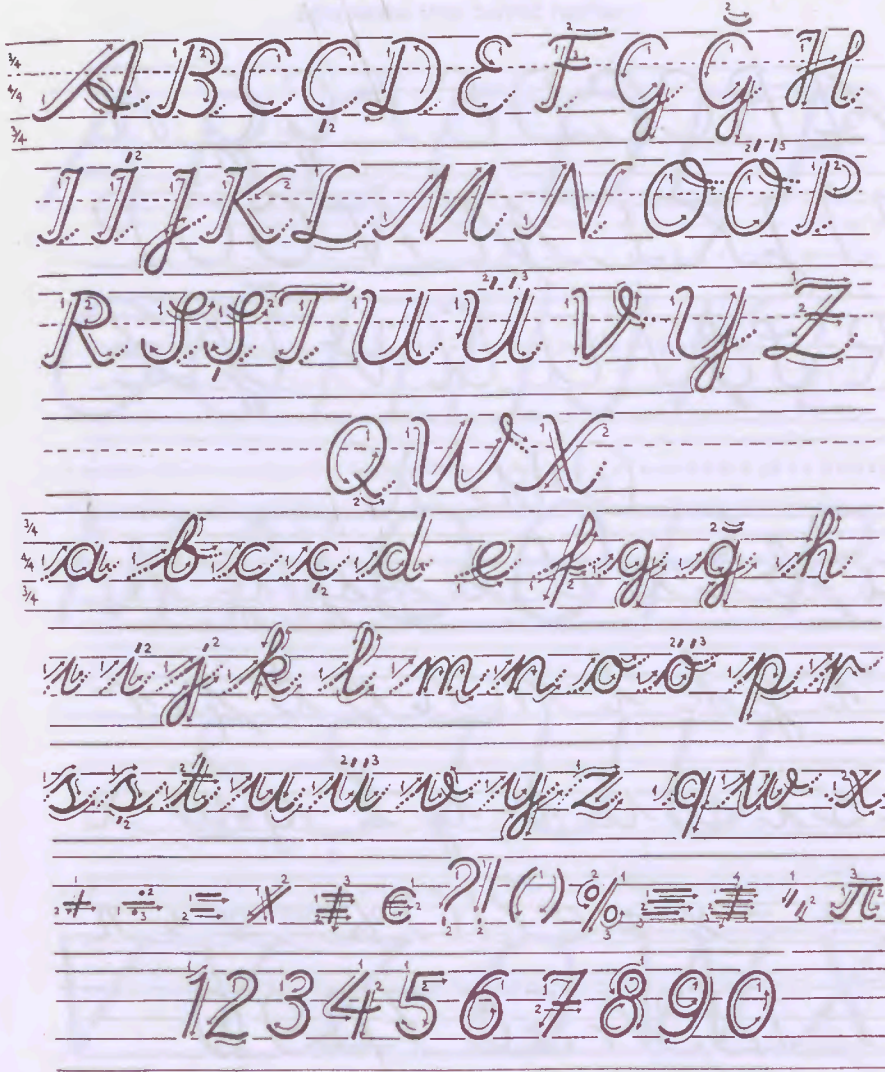 A B C Ç D E F G Ğ H
I İ J K L M N O Ö P
R S Ş T U Ü V Y Z
Q W X
a b c ç d e f g ğ h
ı i j k l m n o ö p r
s ş t u ü v y z q w x
+ ÷ = x ≠ € ? ! ( ) % ≡ ≢ " π
1 2 3 4 5 6 7 8 9 0